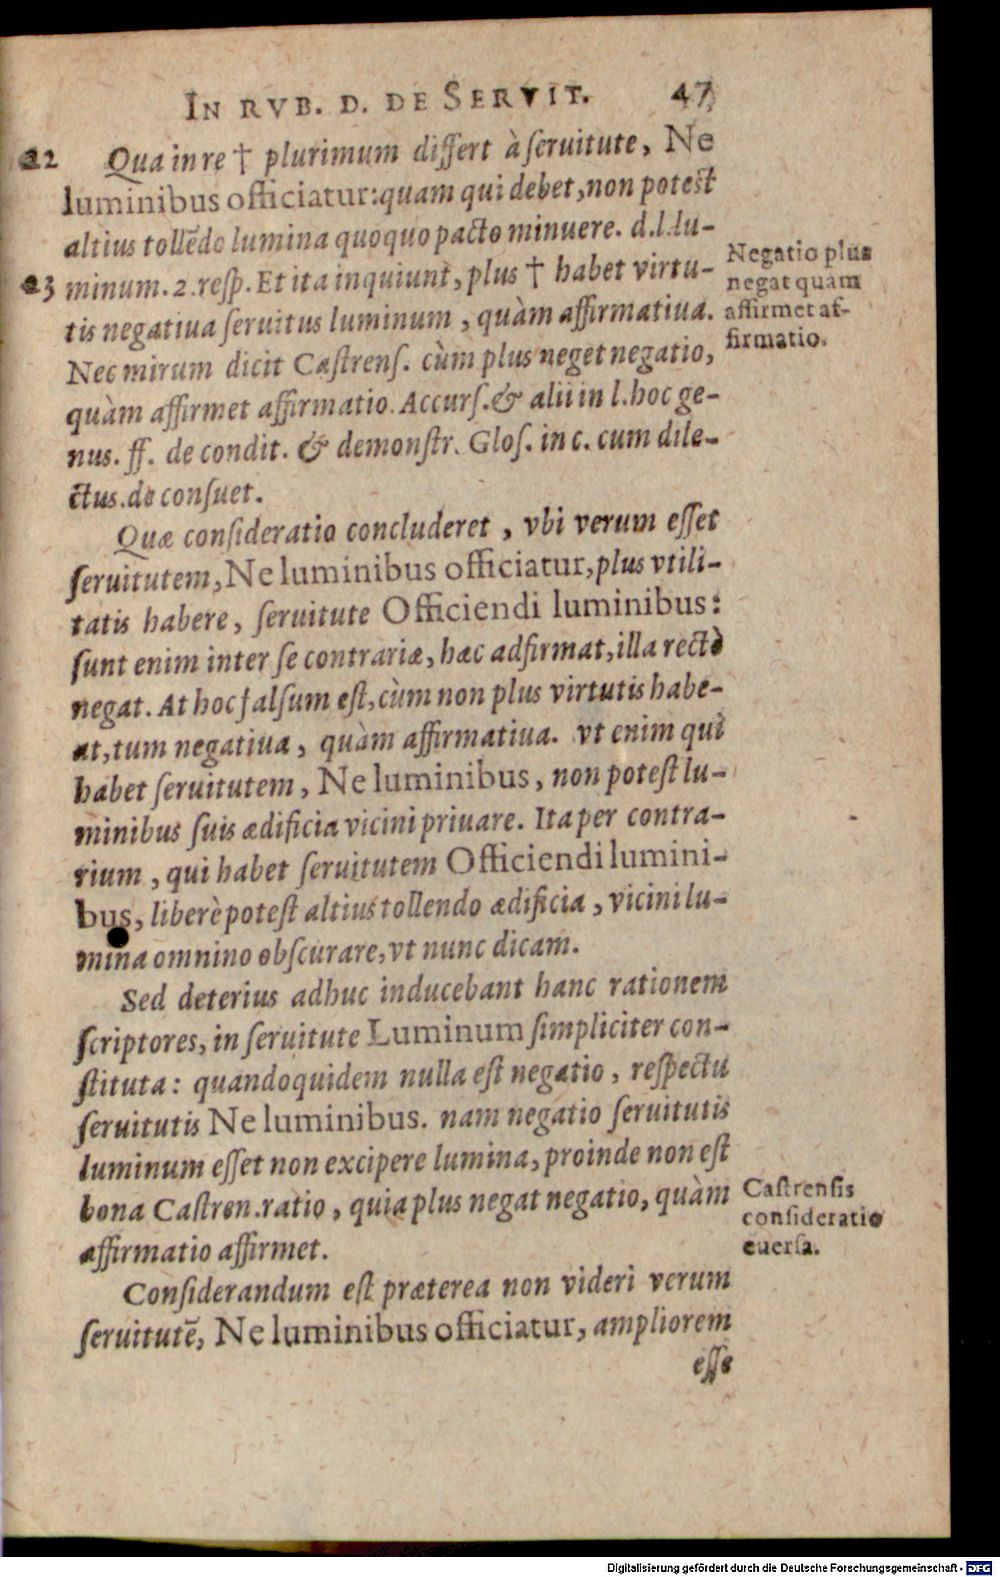 IN RVB. D. DE SERVIT. 47
22 Qua in re † plurimum differt à seruitute, Ne
luminibus officiatur: quam qui debet, non potest
altius tollẽdo lumina quoquo pacto minuere. d.l.lu-
23 minum. 2. resp. Et ita inquiunt, plus † habet virtu-
tis negatiua seruitus luminum, quàm affirmatiua.
Nec mirum dicit Castrens. cùm plus neget negatio,
quàm affirmet affirmatio. Accurs. & alii in l. hoc ge-
nus. ff. de condit. & demonstr. Glos. in c. cum dile-
ctus. de consuet.
Negatio plus
negat quàm
affirmet af-
firmatio.
Quæ consideratio concluderet, vbi verum esset
seruitutem, Ne luminibus officiatur, plus vtili-
tatis habere, seruitute Officiendi luminibus:
sunt enim inter se contrariæ, hæc adfirmat, illa rectè
negat. At hoc falsum est, cùm non plus virtutis habe-
at, tum negatiua, quàm affirmatiua. vt enim qui
habet seruitutem, Ne luminibus, non potest lu-
minibus suis ædificia vicini priuare. Ita per contra-
rium, qui habet seruitutem Officiendi lumini-
bus, liberè potest altius tollendo ædificia, vicini lu-
mina omnino obscurare, vt nunc dicam.
Sed deterius adhuc inducebant hanc rationem
scriptores, in seruitute Luminum simpliciter con-
stituta: quandoquidem nulla est negatio, respectu
seruitutis Ne luminibus. nam negatio seruitutis
luminum esset non excipere lumina, proinde non est
bona Castren. ratio, quia plus negat negatio, quàm
affirmatio affirmet.
Castrensis
consideratio
euersa.
Considerandum est præterea non videri verum
seruitutẽ, Ne luminibus officiatur, ampliorem
esse
Digitalisierung gefördert durch die Deutsche Forschungsgemeinschaft - DFG